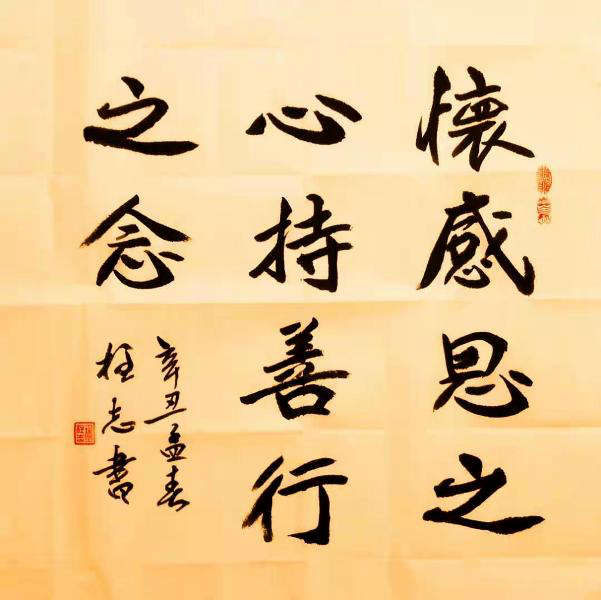 懷感恩之
心持善行
之念
辛丑孟春
志書